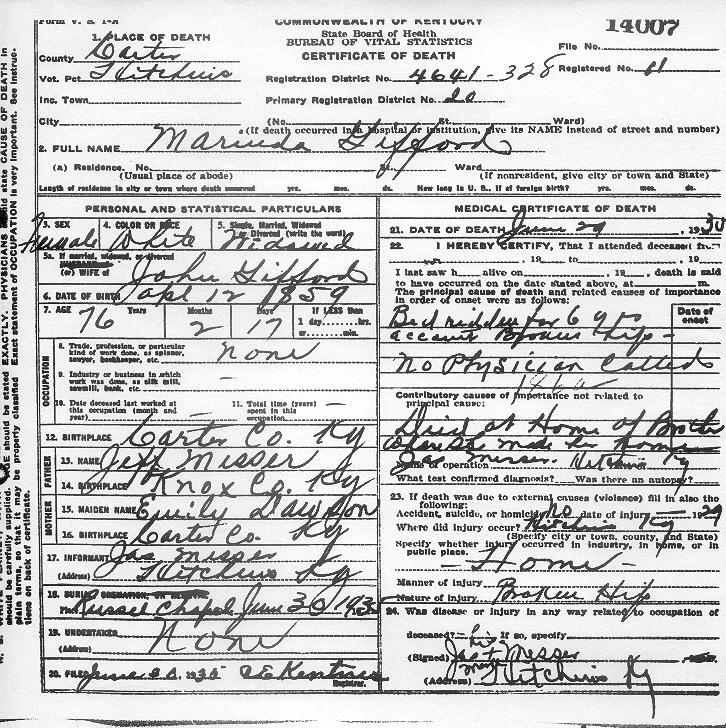 Form V. S. 1-A
COMMONWEALTH OF KENTUCKY
State Board of Health
BUREAU OF VITAL STATISTICS
CERTIFICATE OF DEATH
14007
File No.
Registered No. 61
1. PLACE OF DEATH
County Carter
Vot. Pct Hitchins
Inc. Town
City
Registration District No. 4641-328
Primary Registration District No. 20
(No. St. Ward)
(If death occurred in a hospital or institution, give its NAME instead of street and number)
2. FULL NAME Marinda Gifford
(a) Residence. No. St. Ward
(Usual place of abode) (If nonresident, give city or town and State)
Length of residence in city or town where death occurred yrs. mos. ds. How long in U. S., if of foreign birth? yrs. mos. ds.
PERSONAL AND STATISTICAL PARTICULARS
3. SEX 4. COLOR OR RACE 5. Single, Married, Widowed or Divorced (write the word)
Female White Widowed
5a. If married, widowed, or divorced
HUSBAND of
(or) WIFE of John Gifford
6. DATE OF BIRTH Apl 12 1859
7. AGE 76 Years 2 Months 17 Days If LESS than 1 day, hrs. or min.
OCCUPATION
8. Trade, profession, or particular kind of work done, as spinner, sawyer, bookkeeper, etc. None
9. Industry or business in which work was done, as silk mill, sawmill, bank, etc. -
10. Date deceased last worked at this occupation (month and year) -
11. Total time (years) spent in this occupation -
12. BIRTHPLACE Carter Co. Ky
FATHER
13. NAME Jeff Messer
14. BIRTHPLACE Knox Co. Ky
MOTHER
15. MAIDEN NAME Emily Dawson
16. BIRTHPLACE Carter Co. Ky
17. INFORMANT Jas Messer
(Address) Hitchins Ky
18. BURIAL, CREMATION, OR REMOVAL
Place Russel Chapel June 30 1935
19. UNDERTAKER None
(Address)
20. FILED June 30 1935
Registrar.
MEDICAL CERTIFICATE OF DEATH
21. DATE OF DEATH June 29, 1935
22. I HEREBY CERTIFY, That I attended deceased from
, 19 , to , 19
I last saw h alive on , 19 death is said
to have occurred on the date stated above, at m.
The principal cause of death and related causes of importance
in order of onset were as follows:
Date of onset
Bed ridden for 6 yrs
account Broken Hip -
No Physician Called
Contributory causes of importance not related to
principal cause:
Died at Home of Brother
where she made her home
Jas Messer Hitchins Ky
Name of operation
What test confirmed diagnosis? Was there an autopsy?
23. If death was due to external causes (violence) fill in also the
following:
Accident, suicide, or homicide? No date of injury - 1929
Where did injury occur? Hitchins Ky
(Specify city or town, county, and State)
Specify whether injury occurred in industry, in home, or in
public place.
- Home -
Manner of injury
Nature of injury Broken Hip
24. Was disease or injury in any way related to occupation of
deceased? If so, specify
(Signed) Jas his x mark Messer
(Address) Hitchins Ky